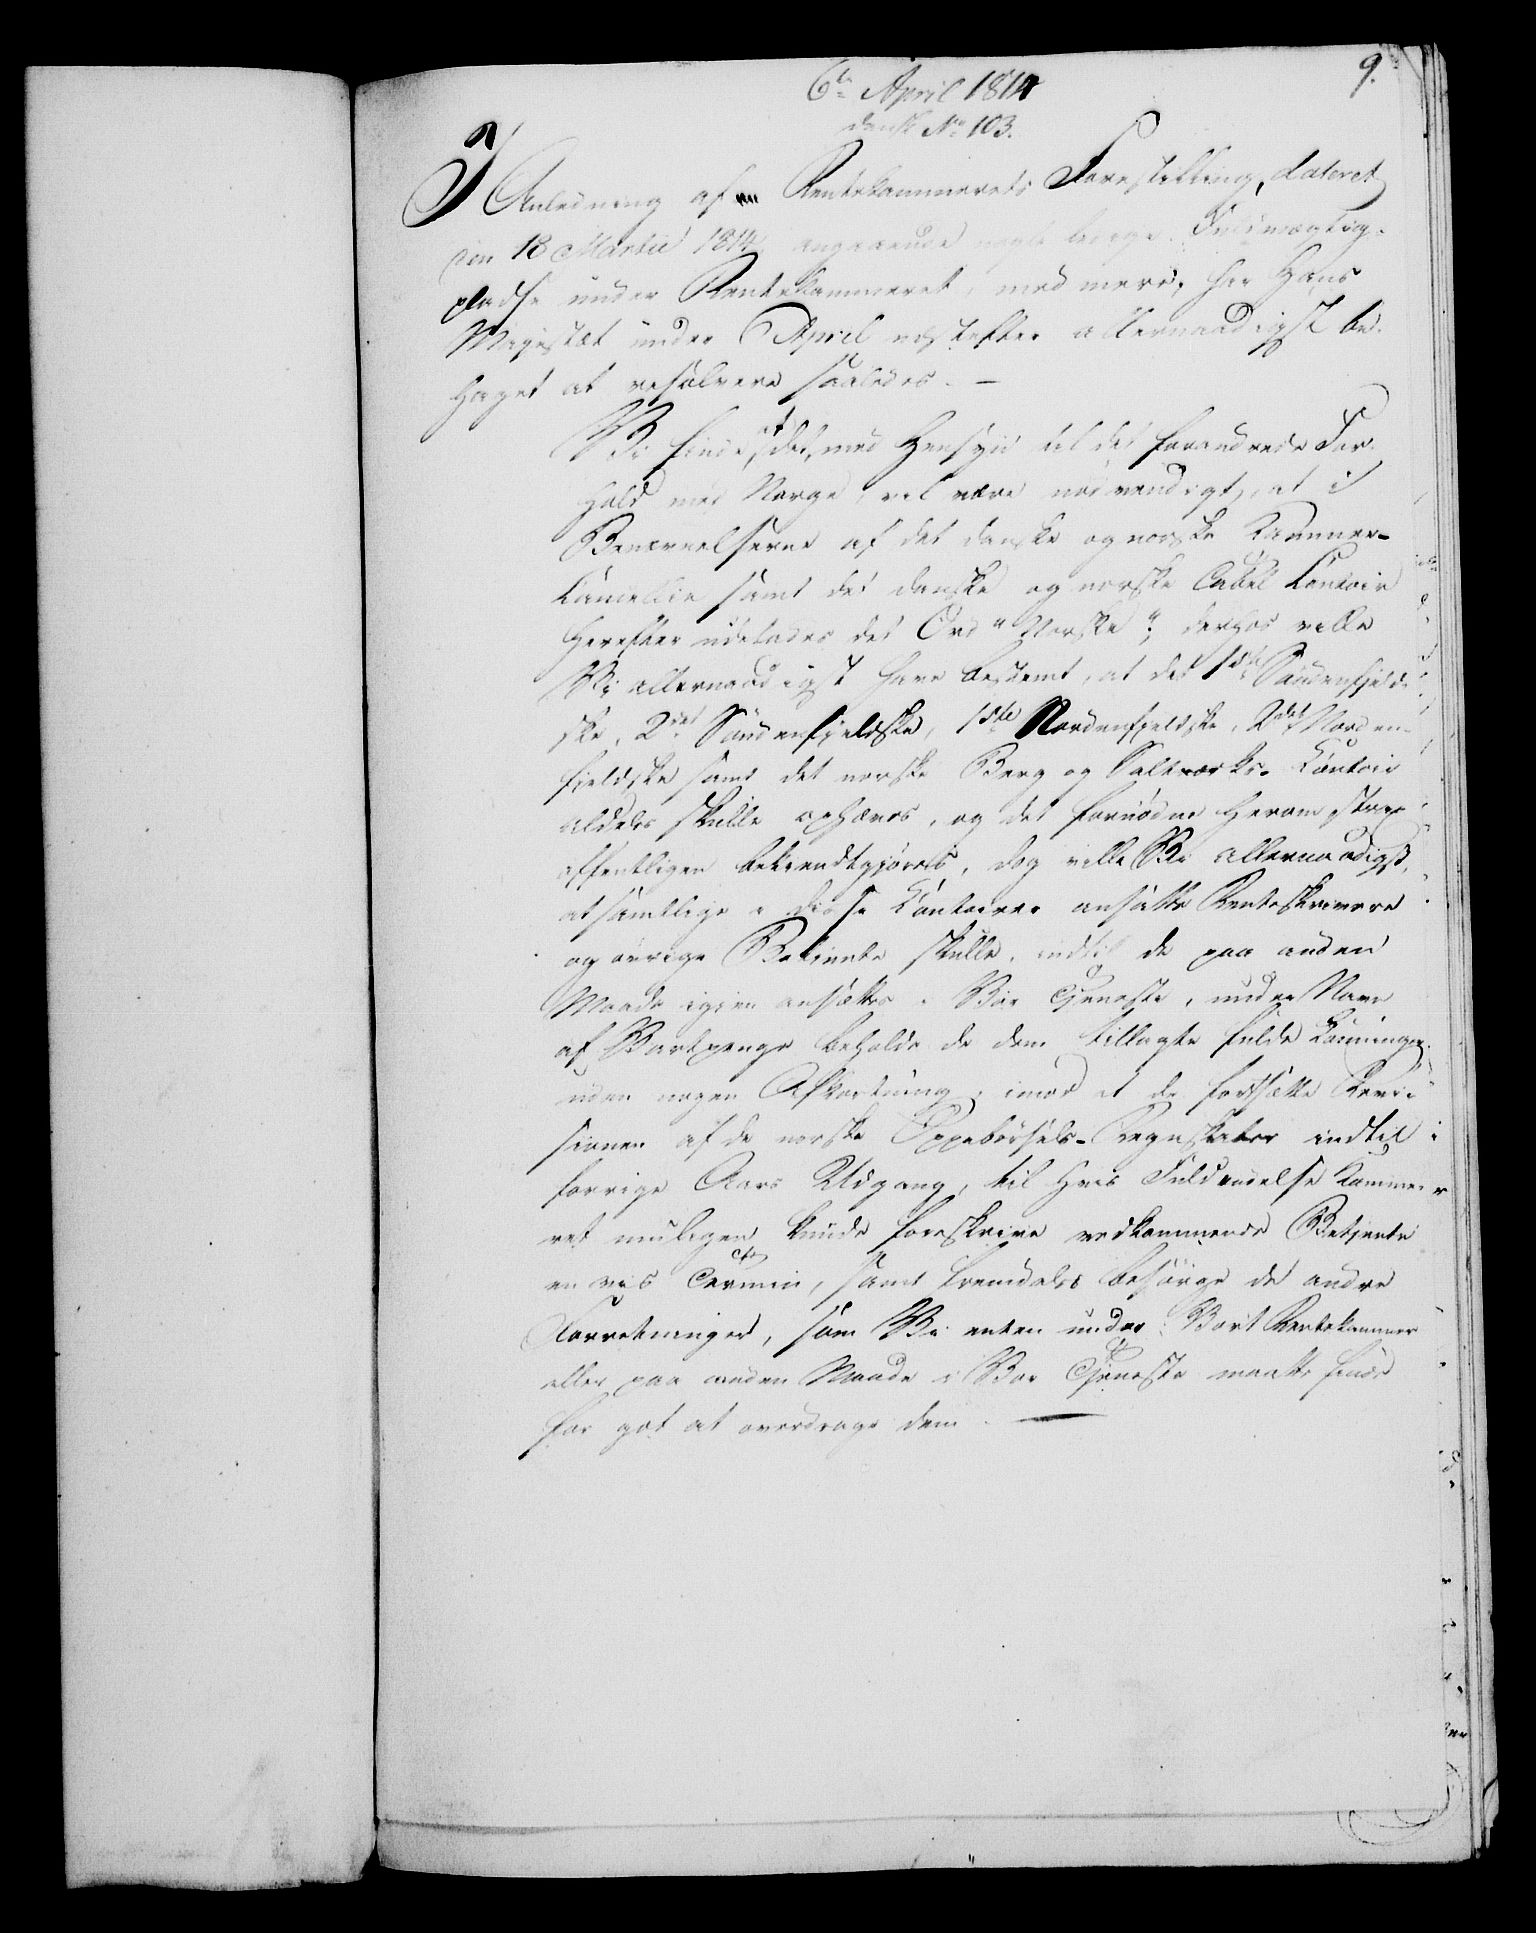 9.
6te April 1814
dansk No 103.
I Anledning af en Rentekammerets Forestilling, dateret
den 18 Martii 1814, angaaende nogle ledige Fuldmægtig-
pladse under Rentekammeret, med mere, har Hans
Majestæt under April næstefter allernaadigst be-
haget at resolvere saaledes. —
Vi finde det, med Hensyn til det forandrede For-
hold med Norge, vel være nødvendigt, at i
Benævnelserne af det danske og norske Kammer-
Cancellie samt det danske og norske Tabel Contoir
herefter udelades det Ord "Norske"; derhos ville
Vi allernaadigst have bestemt, at det 1ste Søndenfjeld-
ske, 2det Søndenfjeldske, 1ste Nordenfjeldske, 2det Norden-
fjeldske samt det norske Berg og Saltværks-Contoir
aldeles skulle ophæves, og det fornødne herom strax
offentligen bekiendtgjøres, dog ville Vi allernaadigst,
at samtlige i disse Contoirer ansatte Renteskrivere
og øvrige Betiente skulle, indtil de paa anden
Maade igien ansættes i Vor Tjeneste, under Navn
af Vartpenge beholde de dem tillagte fulde Lønninger
uden nogen Afkortning, imod at de fortsætte Revi-
sionen af de norske Oppebørsels-Regnskaber indtil
forrige Aars Udgang, til hvis Fuldendelse Kamme-
ret muligen kunde foreskrive vedkommende Betjente
en vis Termin, samt fremdeles besørge de andre
Forretninger, som Vi enten under Vort Rentekammer
eller paa anden Maade i Vor Tjeneste maatte finde
for got at overdrage dem. —